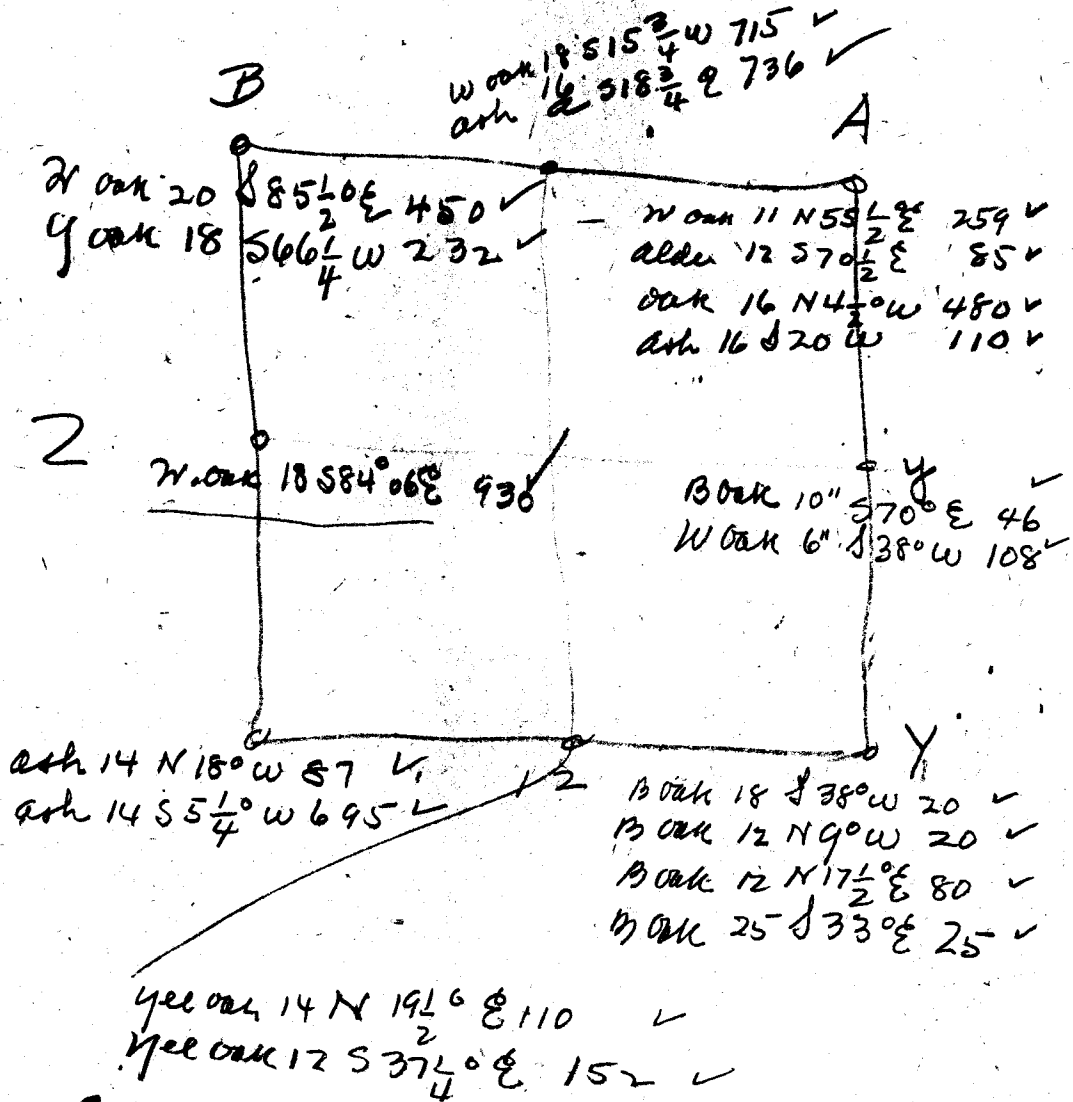 W oak 18 S15 3/4 W 715 ✓
ash 16 S18 3/4 E 736 ✓
B
A
W oak 20 S85 1/2° E 450 ✓
Y oak 18 S66 1/4 W 232 ✓
W oak 11 N55 1/2 E 259 ✓
alder 12 S70 1/2 E 85 ✓
oak 16 N4 1/2° W 480 ✓
ash 16 S20 W 110 ✓
Z
W. oak 18 S84° 06 E 930 ✓
y
B oak 10" S70° E 46 ✓
W oak 6" S38° W 108 ✓
ash 14 N18° W 87 ✓
ash 14 S5 1/4° W 695 ✓
12
Y
B oak 18 S38° W 20 ✓
B oak 12 N9° W 20 ✓
B oak 12 N17 1/2° E 80 ✓
B oak 25 S33° E 25 ✓
yel oak 14 N 19 1/2° E 110 ✓
yel oak 12 S37 1/4° E 152 ✓